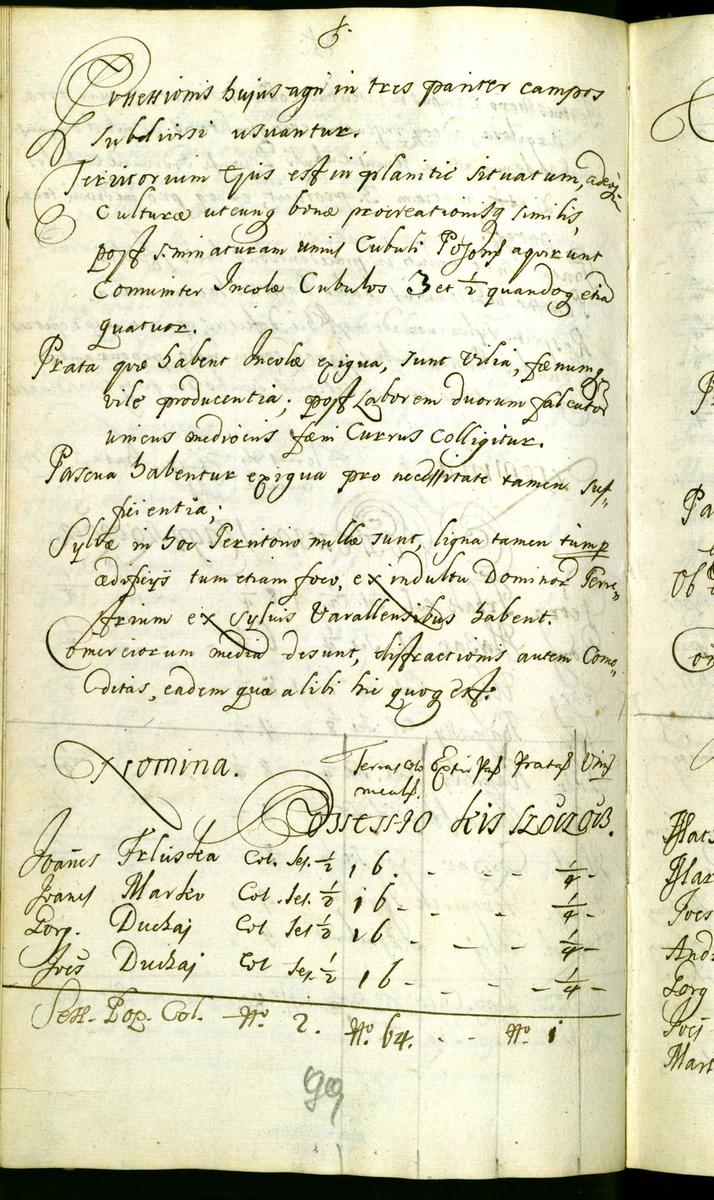 6.
Possessionis hujus agri in tres pariter campos
subdivisi usuantur.
Territorium Ejus est in planitie situatum, adeoq
Culturæ utcunq bonæ procreationisq similis,
post seminaturam unius Cubuli Posons aquirunt
Comuniter Incolæ Cubulos 3 et ½ quandoq etiā
quatuor.
Prata quæ habent Incolæ exigua, sunt vilia, fænumq
vile producentia; post Laborem duorum falcator
unicus mediocris fæni Currus colligitur.
Pascua habentur exigua pro necessitate tamen suf-
ficientia;
Sylvæ in hoc Territorio nullæ sunt, ligna tamen tum p
ædificijs tum etiam foco, ex indultu Dominor Terre-
strium ex sylvis Varallensibus habent.
Comerciorum media desunt, distractionis autem Como-
ditas, eadem quæ alibi hic quoq est.
Nomina. Terras colo Extir Pratas
Possessio Kis Szoczocz.
Joānes Fluska Col. Ses. ½ 16. - - - ¼ -
Joanes Marko Col. Ses. ½ 16 - - - ¼ -
Georg. Duchaj Col Ses ½ 16 - - - ¼ -
Joēs Duchaj Col Ses. ½ 16 - - - ¼ -
Sess. Pop. Col. No. 2. No. 64. - - No. 1
99